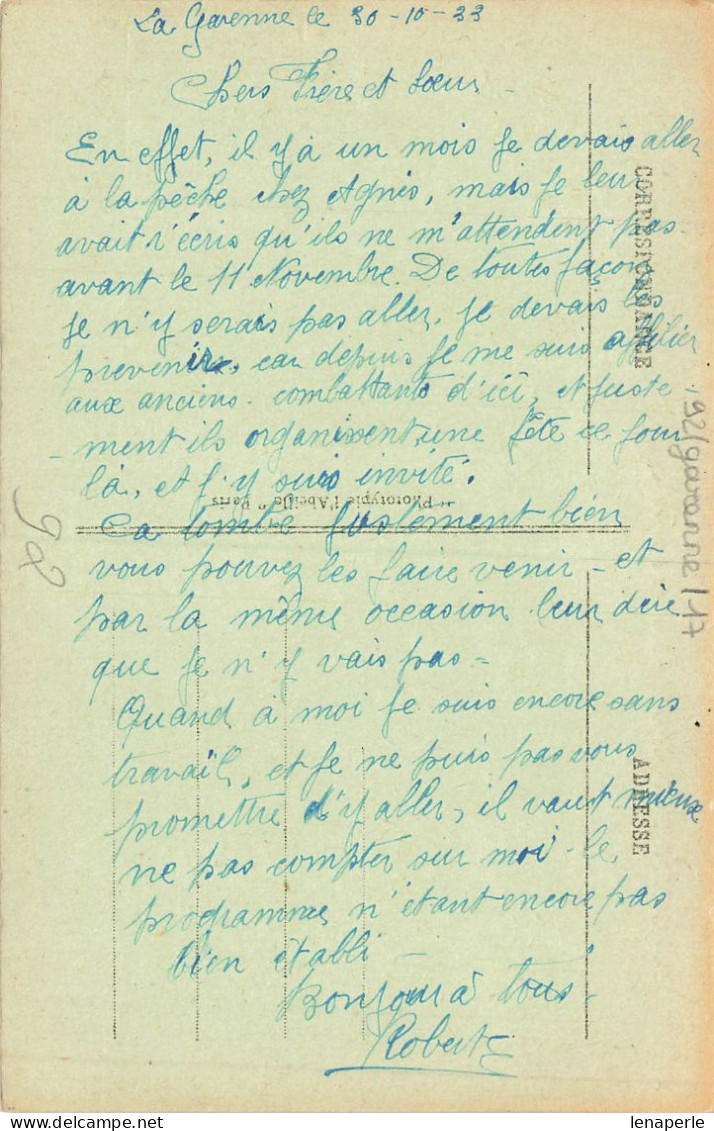 La Garenne le 30-10-33
Chers Frère et Sœur -
En effet, il y a un mois je devais aller
à la pêche chez Agnès, mais je leur
avait r'écris qu'ils ne m'attendent pas
avant le 11 Novembre. De toutes façon
je n'y serais pas aller, je devais les
prevenir, car depuis je me suis affilier
aux anciens - combattants d'ici, et juste
- ment ils organisent une fête ce jour
là, et j'y suis invité.
Ca tombe justement bien
vous pouvez les faire venir - et
par la même occasion leur dire
que je n'y vais pas =
Quand à moi je suis encore sans
travail, et je ne puis pas vous
promettre d'y aller, il vaut mieux
ne pas compter sur moi - le
programme n'étant encore pas
bien établi -
Bonjour à tous
Robert
CORRESPONDANCE
ADRESSE
" Phototypie l'Abeille " Paris
92
92/garenne/17
lenaperle